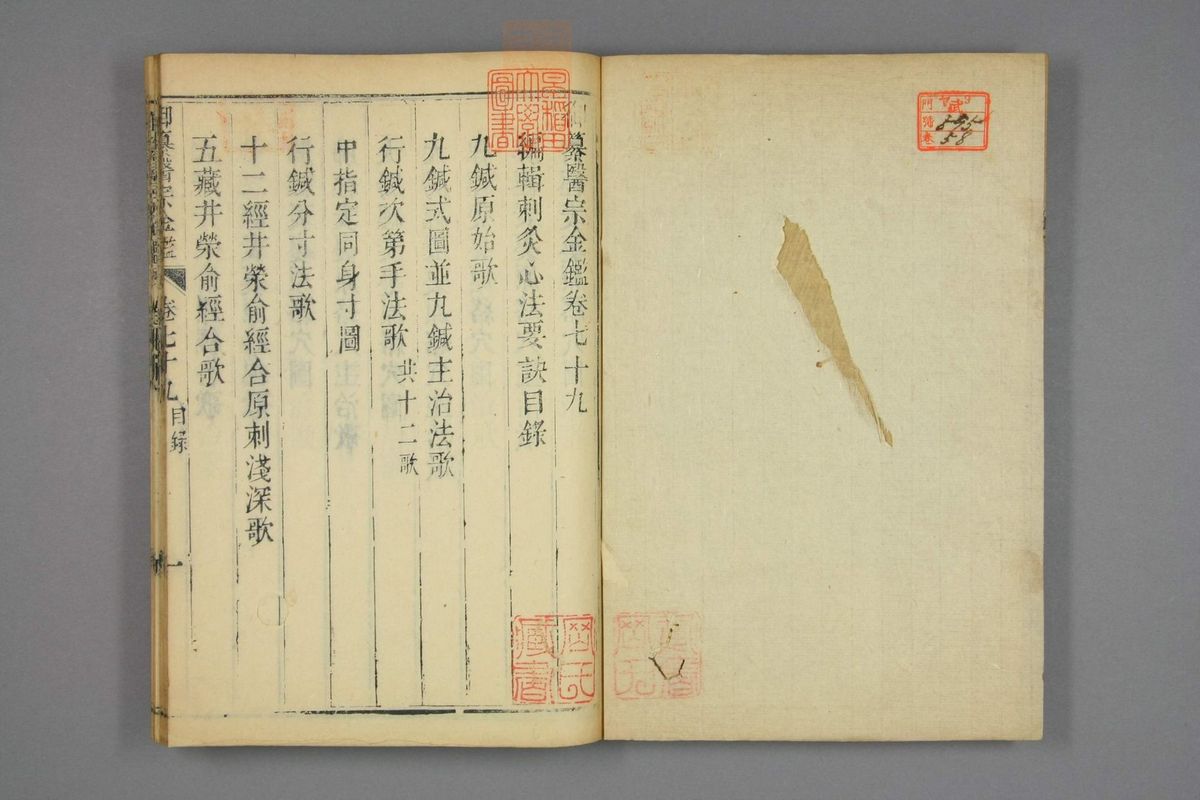 御纂醫宗金鑑卷七十九
編輯刺灸心法要訣目錄
九鍼原始歌
九鍼式圖並九鍼主治法歌
行鍼次第手法歌 共十二歌
中指定同身寸圖
行鍼分寸法歌
十二經井滎俞經合原刺淺深歌
五藏井滎俞經合歌
御纂醫宗金鑑 卷七十九 目錄 一
早稻田大學圖書
岡氏藏書
門 號 卷